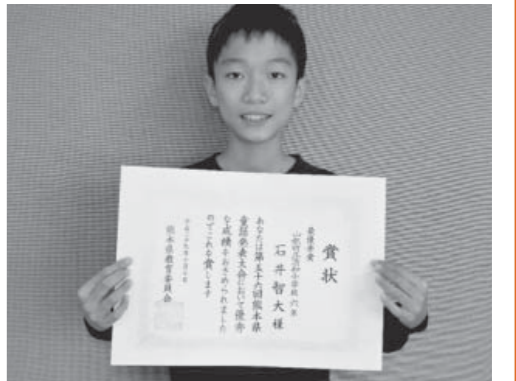 賞状
最優秀賞
六年
石井智大様
あなたは第五十六回熊本県
童話発表大会において優秀
な成績をおさめられました
のでこれを賞します
熊本県教育委員会